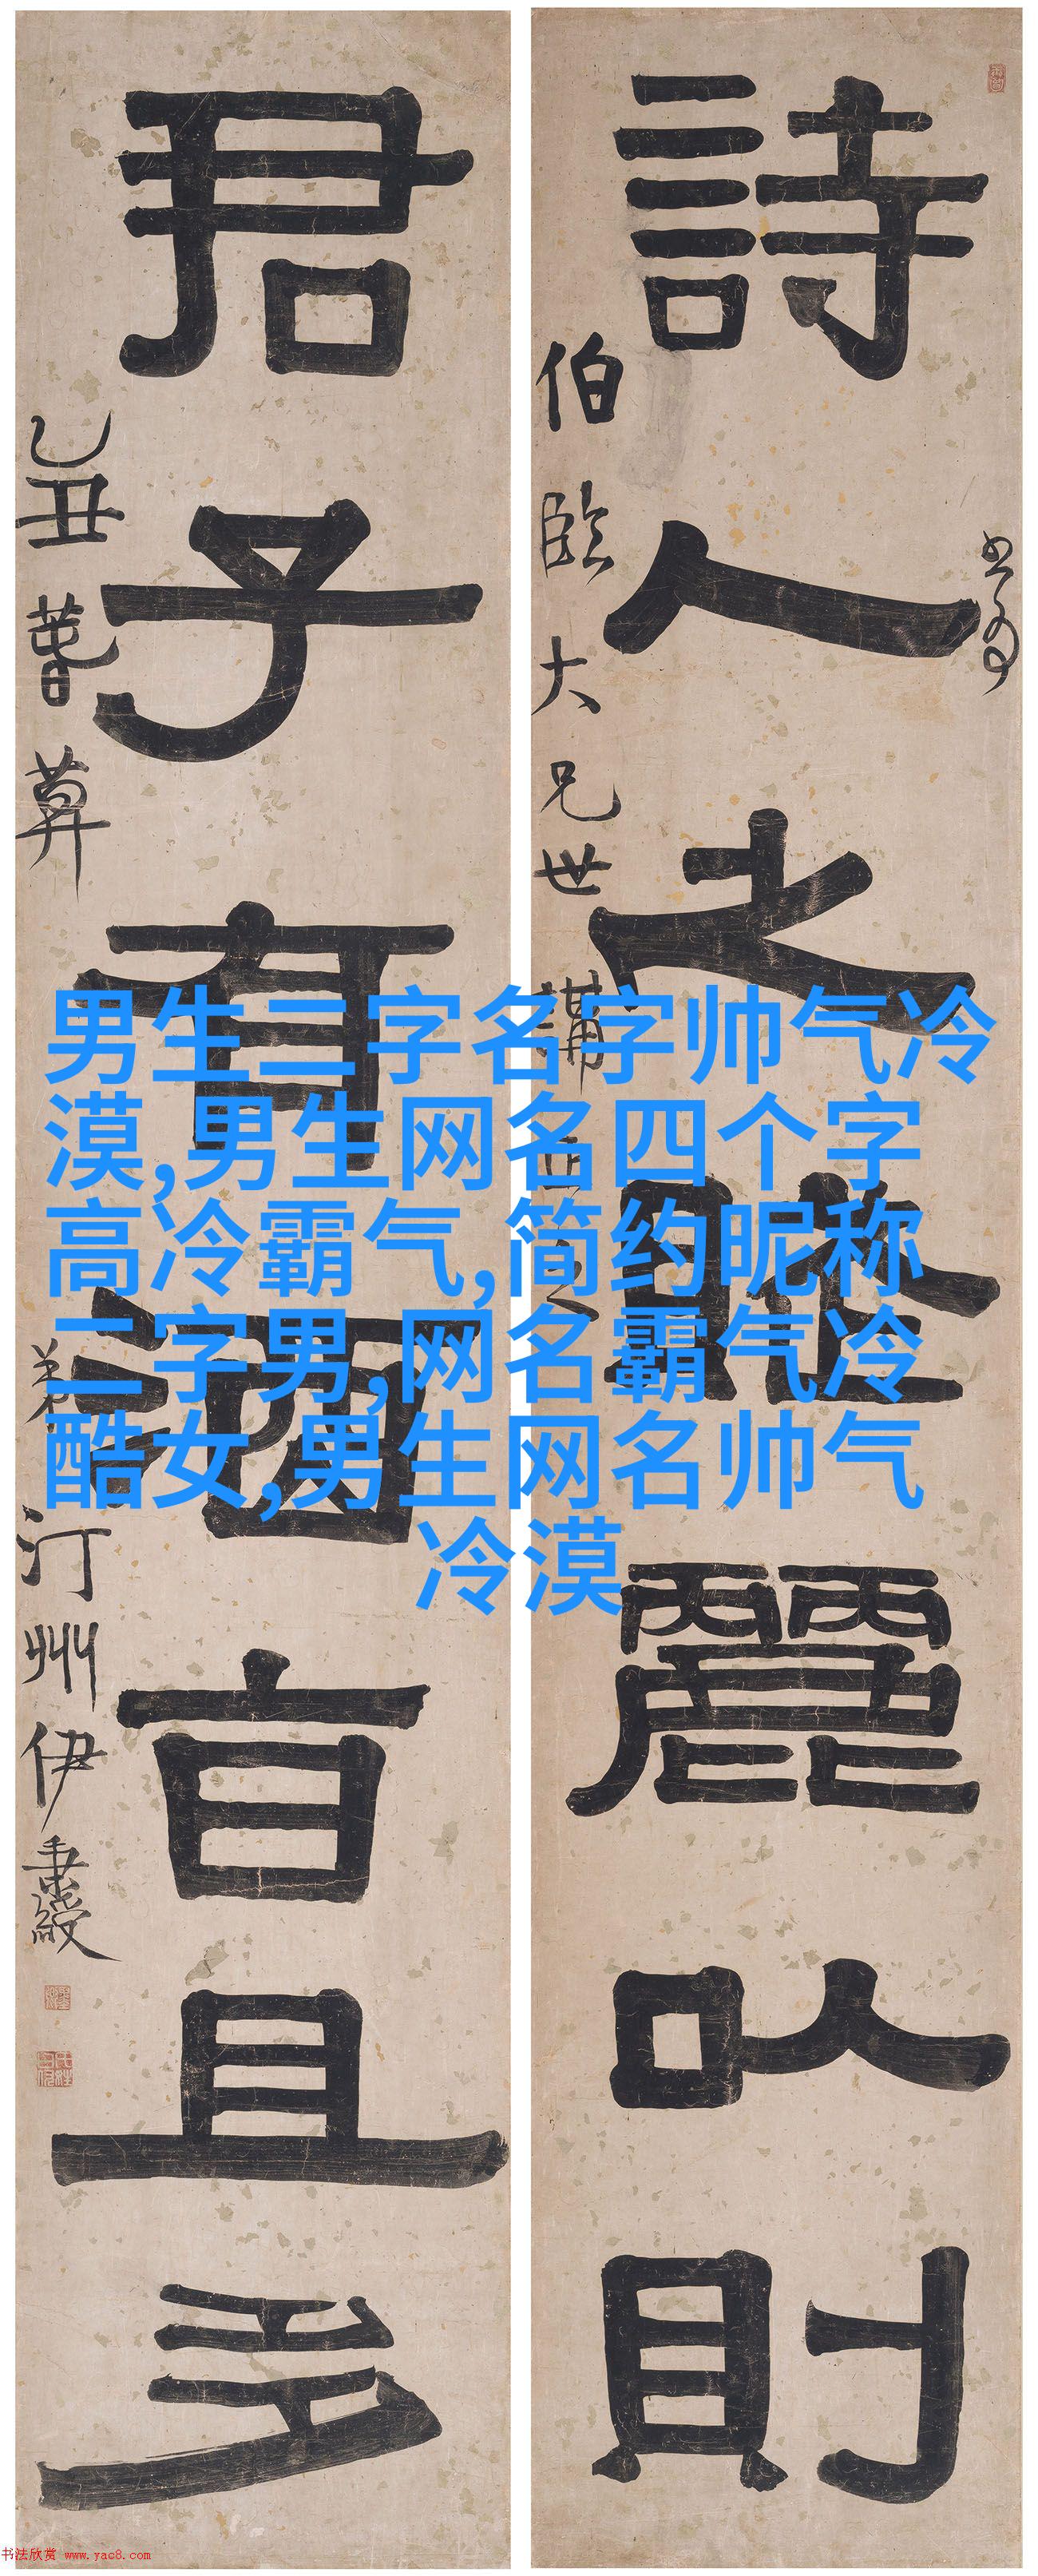 詩人之賦麗以則
伯臨大兄世講
正之
君子有酒旨且多
乙丑暮春
弟汀州伊秉綬
男生二字名字帅气冷
漠,男生网名四个字
高冷霸气,简约昵称
二字男,网名霸气冷
酷女,男生网名帅气
冷漠
书法欣赏 www.yac8.com